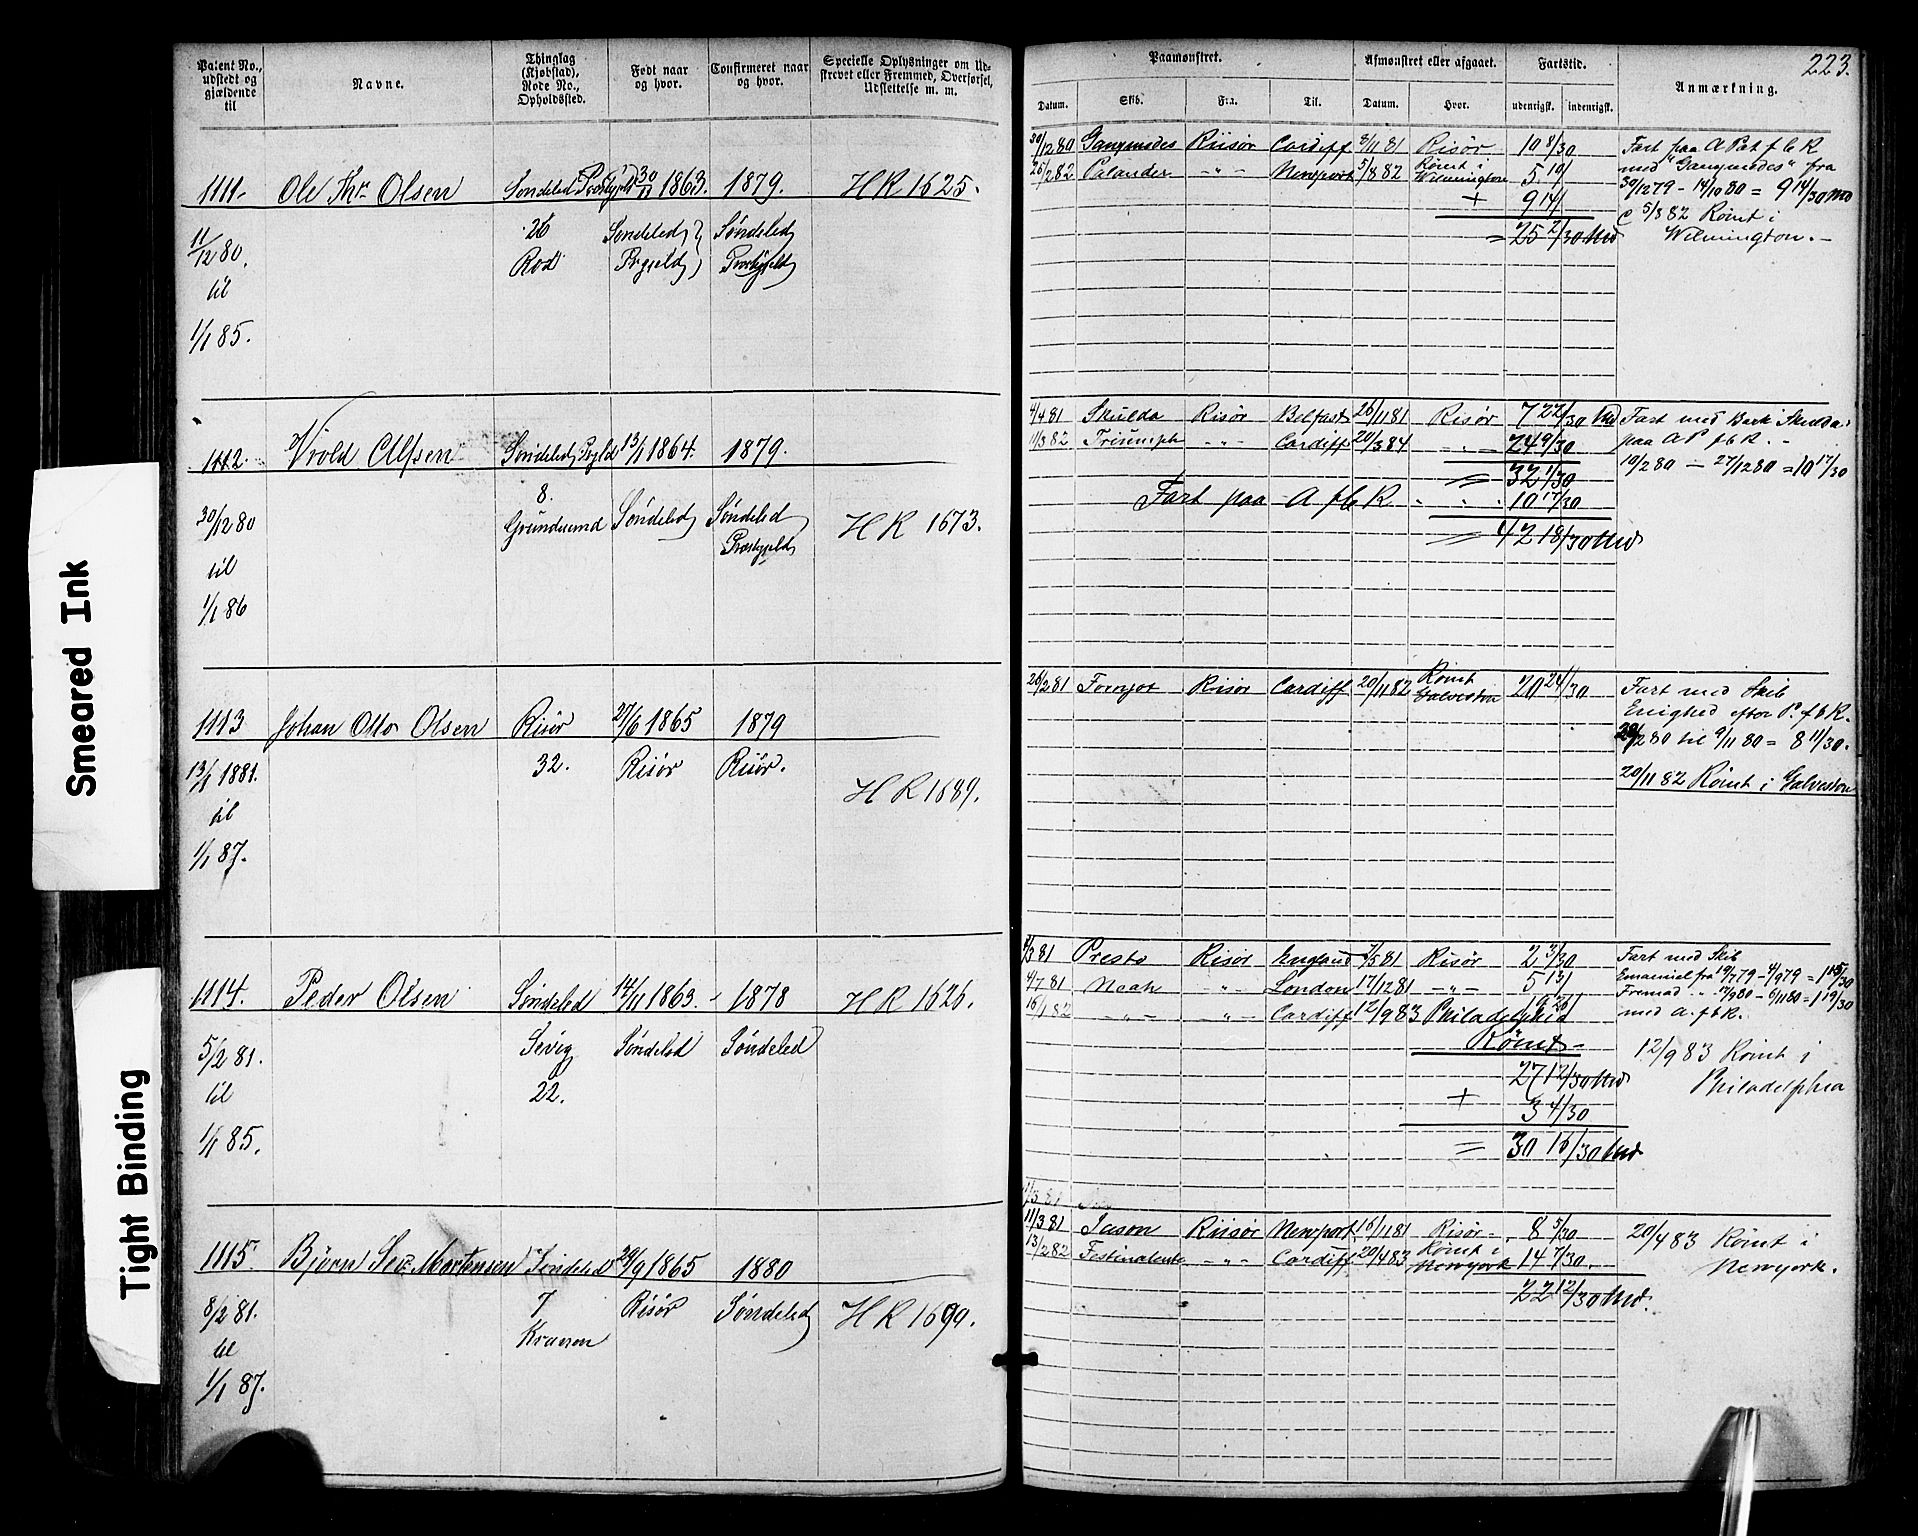 Smeared Ink
Tight Binding
Patent No., udstedt og gjældende til
Navne.
Thinglag (Kjøbstad), Rode No., Opholdssted.
Født naar og hvor.
Confirmeret naar og hvor.
Specielle Oplysninger om Udskrevet eller Fremmed, Overførsel, Udslettelse m. m.
1111. Ole Chr. Olsen Søndeled Præstegjeld 30/11 1863. 1879. HR 1625.
11/12 80. 26 Søndeled Søndeled
Rød Prgjeld Præstegjeld
til
1/1 85.
1112. Vrold Alfsen Søndeled Prgld 13/1 1864. 1879.
30/12 80 8. Grundsund Søndeled Søndeled HR 1673.
Præstegjeld
til
1/1 86
1113 Johan Otto Olsen Risør 27/6 1865 1879
13/1 1881. 32. Risør Risør.
HR 1689.
til
1/1 87.
1114. Peder Olsen Søndeled 14/11 1863. - 1878 HR 1626.
5/2 81. Sevig Søndeled Søndeled
til 22.
1/1 85.
1115. Bjørn Sev. Mortensen Søndeled 29/9 1865 1880
8/2 81. 7 Risør Søndeled HR 1699.
til Kranen
1/1 87.
223.
Paamønstret.
Afmønstret eller afgaaet.
Fartstid.
Anmærkning.
Datum. Skib. Fra. Til. Datum. Hvor. udenrigsk. indenrigsk.
30/12 80 Ganymedes Risør Cardiff 8/11 81 Risør 10 8/30 Fart paa A Pat f C R
25/2 82 Palander -"- Newport 5/8 82 Rømt i Wilmington 5 10/ med "Ganymedes" fra
+ 9 14/ 30/12 79 - 14/10 80 = 9 14/30 Md
= 25 2/30 Md 5/8 82 Rømt i
Wilmington. -
4/4 81 Skulda Risør Belfast 26/11 81 Risør 7 22/30 Md Fart med Bark Skulda
11/3 82 Triumph -"- Cardiff 20/3 84 -"- 24 9/30 paa A P f C R. -
= 32 1/30 10/2 80 - 27/12 80 = 10 17/30
Fart paa A f C R " " " 10 17/30
= 42 18/30 Md
26/2 81 Fornjot Risør Cardiff 20/11 82 Rømt Galveston 20 24/30 Fart med Skib
Enighed efter P. f C R.
/2 80 til 9/11 80 = 8 11/30.
20/11 82 Rømt i Galveston
4/3 81 Presto Risør England 7/5 81 Risør 2 3/30 Fart med Skib
4/7 81 Noah -"- London 17/12 81 -"- 5 13/ Emanuel fra 19/7 79 - 4/9 79 = 1 15/30
16/1 82 -"- -"- Cardiff 12/9 83 Philadelphia 19 26/ Fremad " 17/9 80 - 6/11 80 = 1 19/30
med A. f C R.
Rømt - 12/9 83 Rømt i
27 12/30 Md Philadelphia
+ 3 4/30
= 30 16/30 Md
11/3 81 Jason Risør Newport 16/11 81 Risør 8 5/30 20/4 83 Rømt i
13/2 82 Festinalente -"- Cardiff 20/4 83 Rømt i Newyork 14 7/30. Newyork.
22 12/30 Md.